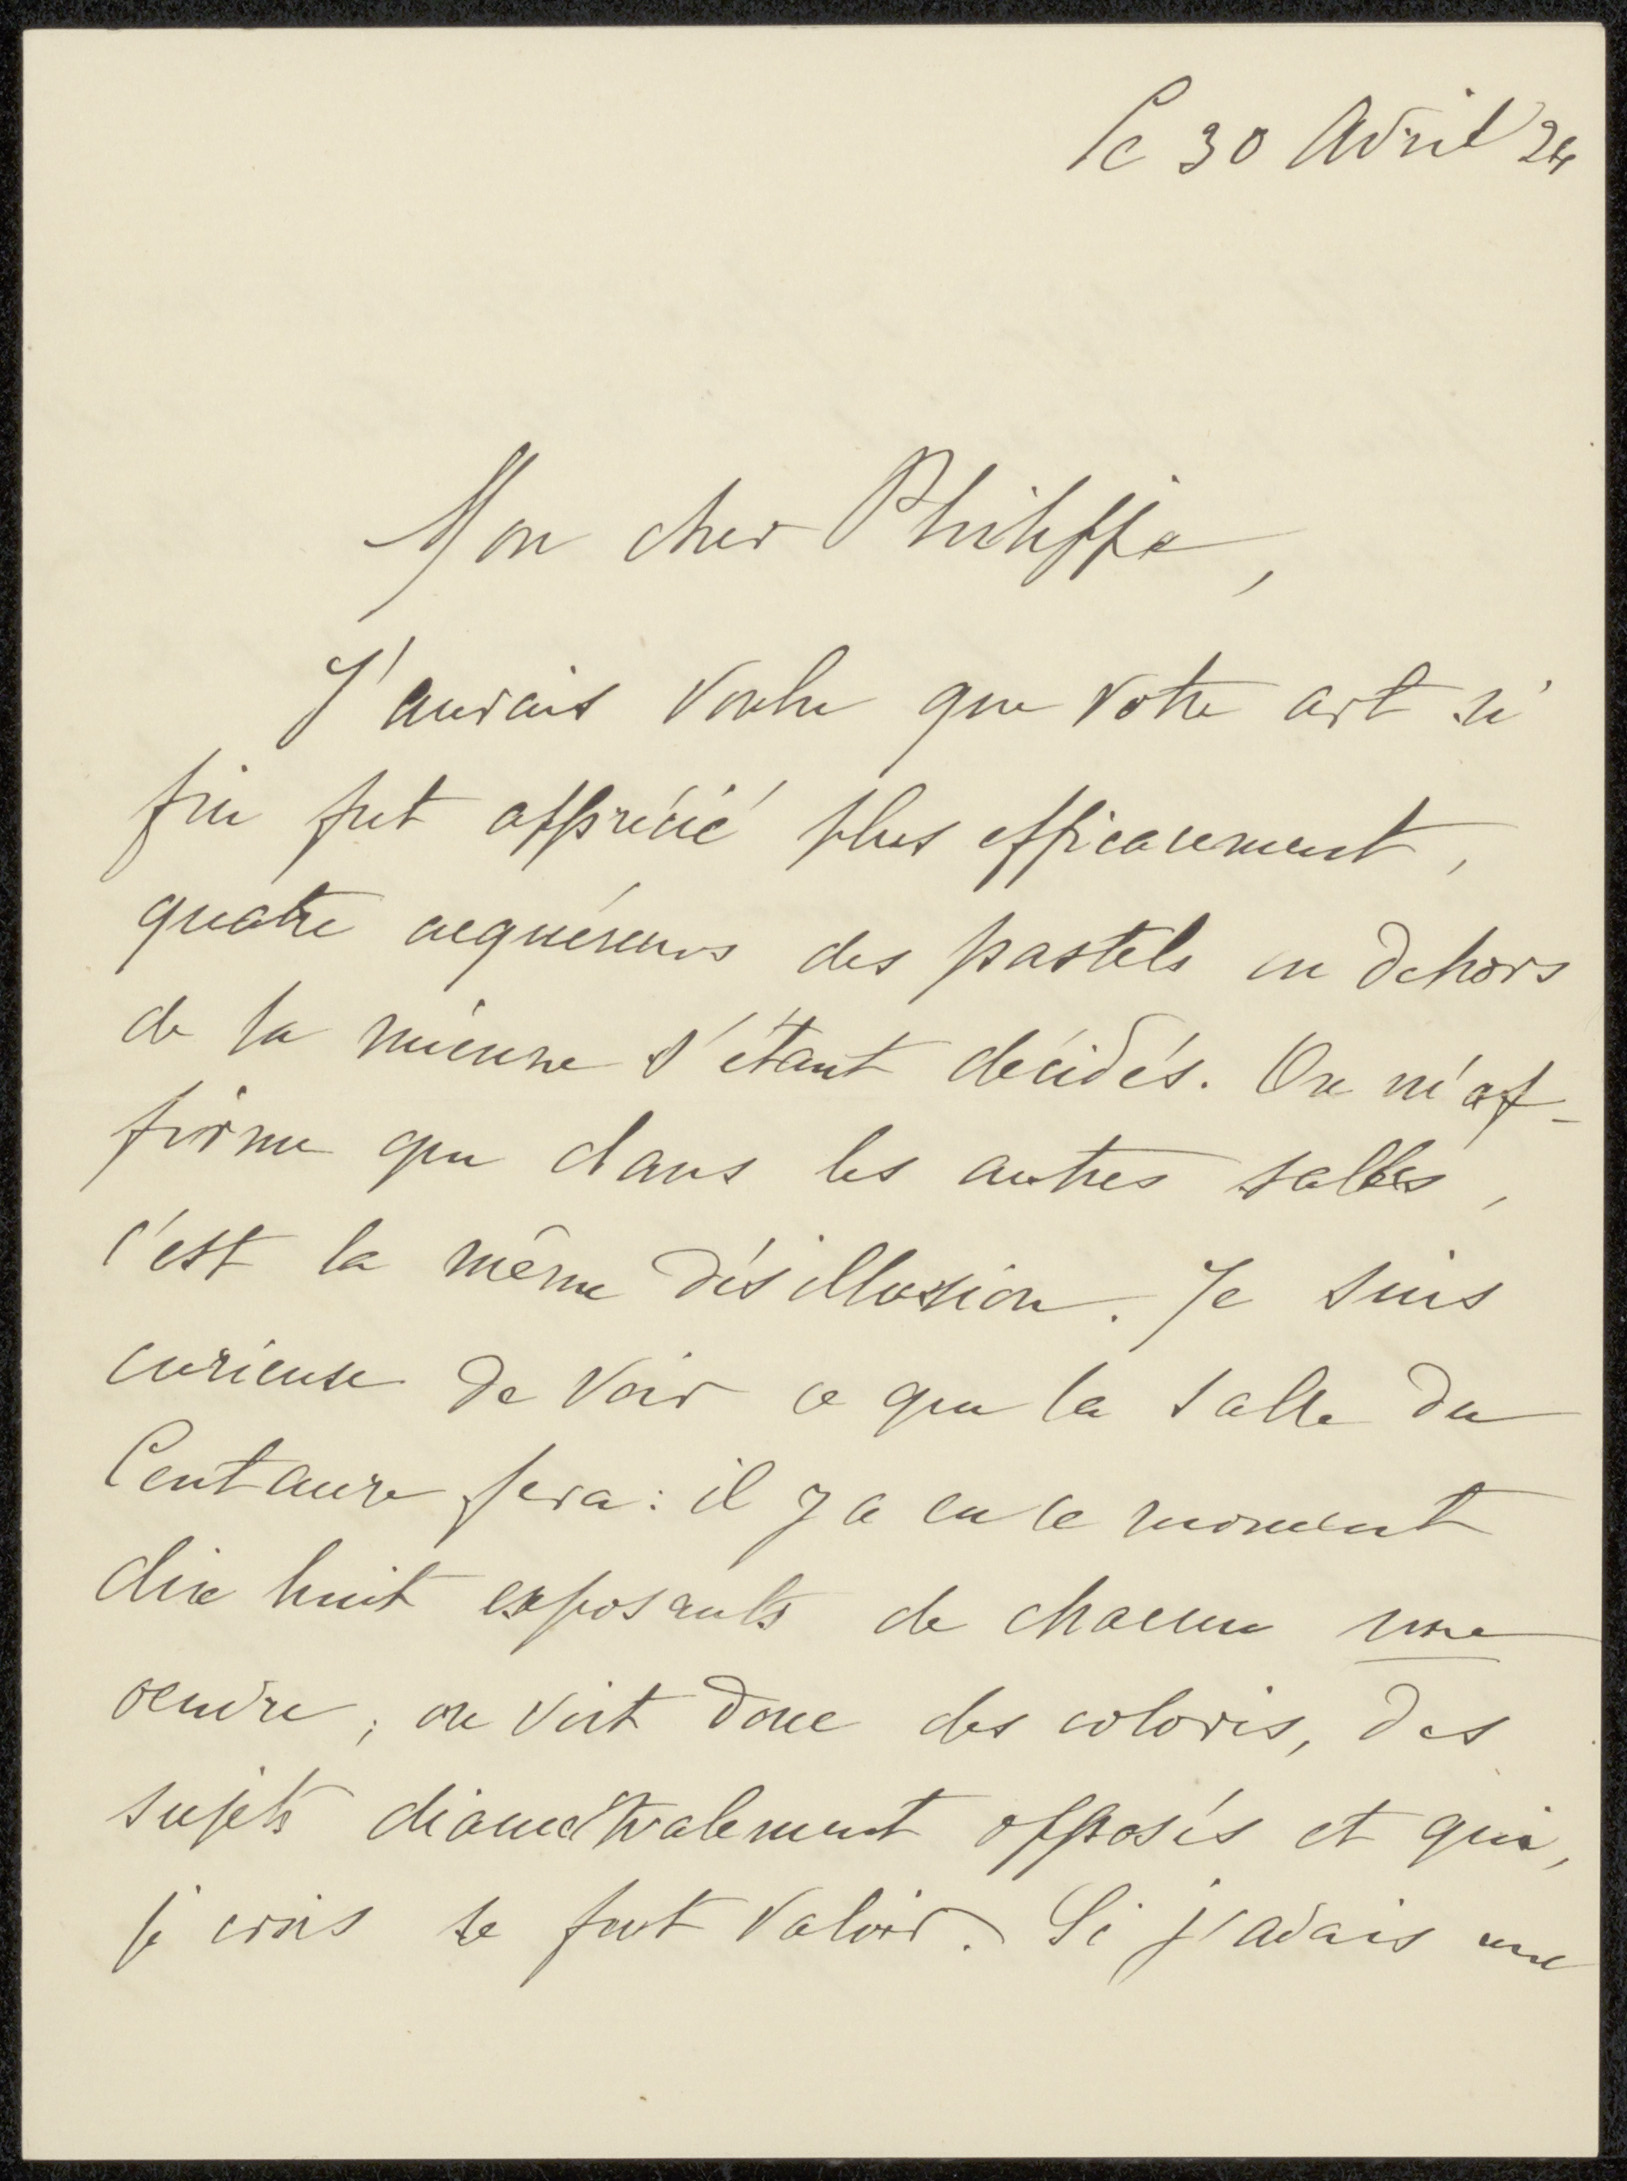 Le 30 Avril 24
Mon cher Philippe,
J'aurais voulu que votre art si
fin fut apprécié plus efficacement,
quatre acquéreurs des pastels en dehors
de la mienne s'étant décidés. On m'af-
firme que dans les autres salles,
c'est la même désillusion. Je suis
curieuse de voir ce que la salle du
Centaure fera: il y a en ce moment
dix huit exposants de chacun une
oeuvre; on voit donc des coloris, des
sujets diamétralement opposés et qui,
je crois se font valoir. Si j'avais une